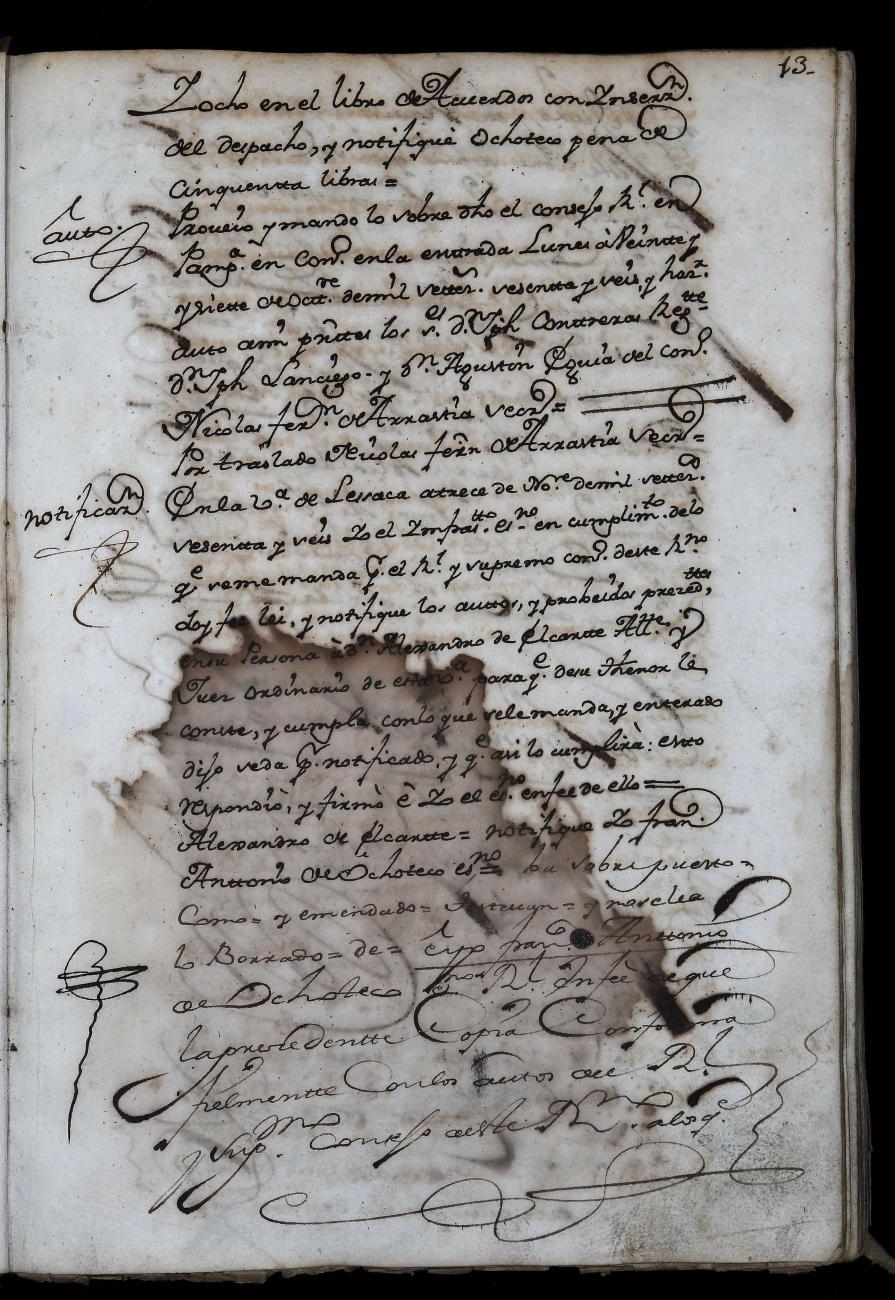 13
Yocho en el libro de Acuerdos con Ynserz.n
del despacho, y notifique Ochoteco pena de
Cinquentta libras =
auto.
Proveio y mando lo sobre dho el consejo R.l en
Pamp.a en Con.o en la entrada Lunes à Veintte y
y siette de Oct.re de mil settez.s sesentta y seis, y haz.r
auto a mi pñttes los s.es D.n Jph Contreras Reg.tte
D.n Jph Lanciego - y D.n Agustin Eguia del con.o
Nicolas fern.n de Arrastia secr.o =
Por traslado Nicolas fern.n de Arrastia Secr.o =
notificaz.n
En la v.a de Lessaca a trece de No.re de mil settez.s
sesentta y seis Yo el Ynfras.tto es.no en cumplim.to de lo
q.e se me manda p.r el R.l y supremo con.o deste R.no
doy fee lei, y notifique los auttos, y probeidos preced.ttes
en su Persona à d.n Alexandro de Elcartte All.tte y
Juez Ordinario de esta v.a para q.e de su thenor le
conste, y cumpla con lo que se le manda, y entterado
dijo se da p.r notificado, y q.e asi lo cumplirà: estto
respondiò, y firmò è Yo el es.no en fee de ello =
Alexandro de Elcartte = notifique Yo fran.co
Anttonio de Ochoteco es.no = sobre puesto =
Como = y emendado = = y no
lo Borrado = de = eyo fran.co Anttonio
de Ochoteco es.no R.l Infeè de que
la precedentte Copia Conforma
fielmentte Con los autos de R.l
y Sup.mo Consejo deste R.no a los q.e